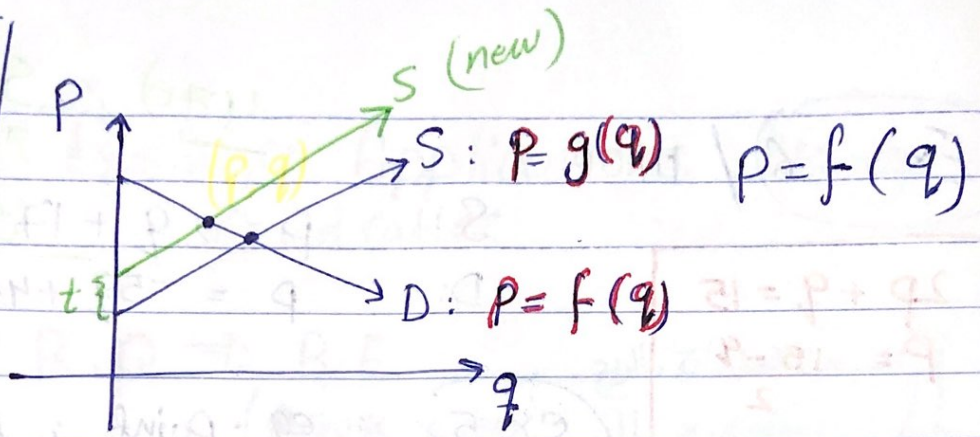 S (new)
P
(p, q)
S : p = g(q)
P = f(q)
t {
D : P = f(q)
q